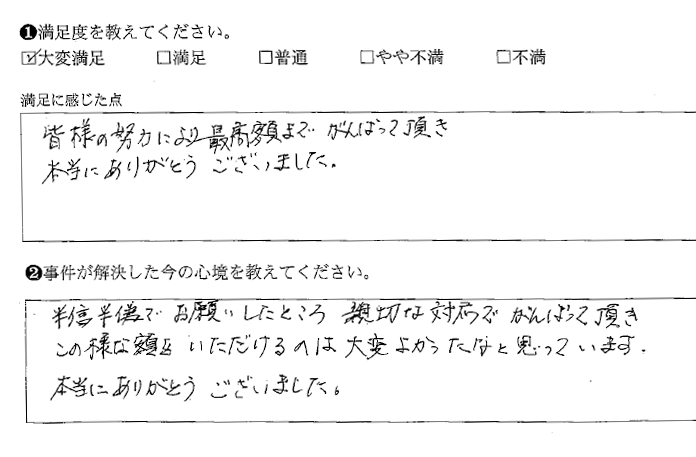 ❶満足度を教えてください。
☑大変満足 □満足 □普通 □やや不満 □不満
満足に感じた点
皆様の努力により最高額まで がんばって頂き
本当にありがとう ございました。
❷事件が解決した今の心境を教えてください。
半信半偽で お願いしたところ 親切な対応で がんばって頂き
この様な額を いただけるのは 大変よかったなと思っています.
本当にありがとう ございました。